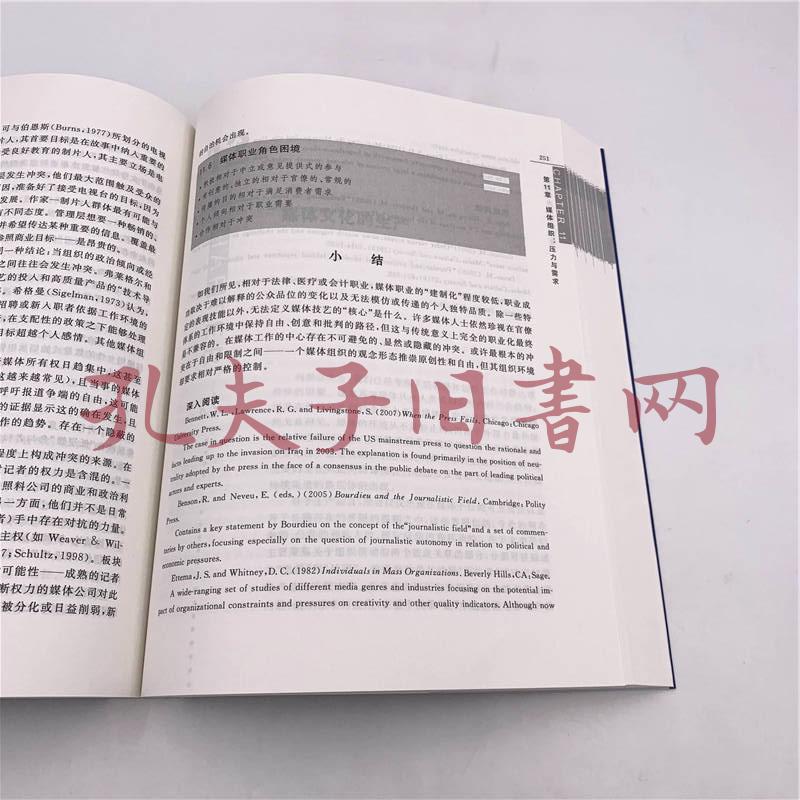 可与伯恩斯(Burns,1977)所划分的电视
片人,其首要目标是在故事中纳入重要的
受良好教育的制片人,其主要立场是电
发生冲突,他们最大范围触及受众的
因,准备好了接受电视台的目标,因为
发展。作家—制片人群体最有可能与
有不同态度。管理层想要一种畅销的、
并希望传达某种重要的信息。覆盖最
参照商业目标——是昂贵的。
同一种结论,当组织的政治倾向或经
之间往往会发生冲突。弗莱格尔和
艺的投入和高质量产品的“技术导
。希格曼(Sigelman,1973)认为,
招聘或新入职者依据工作环境的
,在支配性的政策之下能够处理
目标超越个人感情。其他媒体组
媒体所有权日趋集中,这甚至
这越来越常见),且当事的媒体
呼吁报道争端的自由,这可能
的证据显示这的确在发生,且
作的趋势。存在一个隐蔽的
程度上构成冲突的来源。在
记者的权力是含混的。一
照料公司的商业和政治利
另一方面,他们并不是日常
者)手中存在对抗的力量。
主权(如 Weaver & Wil-
7;Schultz,1998)。板块
可能性——成熟的记者
断权力的媒体公司对此
被分化或日益削弱,新
的自治机会出现。
11.6 媒体职业角色困境
·积极相对于中立或意见提供式的参与
·有创意的、独立的相对于官僚的、常规的
·沟通的目的相对于满足消费者需求
·个人倾向相对于职业需要
·合作相对于冲突
小 结
如我们所见,相对于法律、医疗或会计职业,媒体职业的“建制化”程度较低,职业成
功取决于难以解释的公众品位的变化以及无法模仿或传递的个人独特品质。除一些特
定的表现技能以外,无法定义媒体技艺的“核心”是什么。许多媒体人士依然珍视在官僚
体系的工作环境中保持自由、创意和批判的路径,但这与传统意义上完全的职业化最终
是不兼容的。在媒体工作的中心存在不可避免的、显然或隐藏的冲突。或许最根本的冲
突在于自由和限制之间——一个媒体组织的观念形态推崇原创性和自由,但其组织环境
却要求相对严格的控制。
深入阅读
Bennett, W. L., Lawrence, R. G. and Livingstone, S. (2007) When the Press Fails. Chicago: Chicago
University Press.
The case in question is the relative failure of the US mainstream press to question the rationale and
facts leading up to the invasion on Iraq in 2003. The explanation is found primarily in the position of neu-
trality adopted by the press in the face of a consensus in the public debate on the part of leading political
actors and experts.
Benson, R. and Neveu, E. (eds.) (2005) Bourdieu and the Journalistic Field. Cambridge: Polity
Press.
Contains a key statement by Bourdieu on the concept of the "journalistic field" and a set of commen-
taries by others, focusing especially on the question of journalistic autonomy in relation to political and
economic pressures.
Ettema, J. S. and Whitney, D. C. (1982) Individuals in Mass Organizations. Beverly Hills, CA: Sage.
A wide-ranging set of studies of different media genres and industries focusing on the potential im-
pact of organizational constraints and pressures on creativity and other quality indicators. Although now
251
CHAPTER 11
第11章 媒体组织:压力与需求
孔夫子旧书网